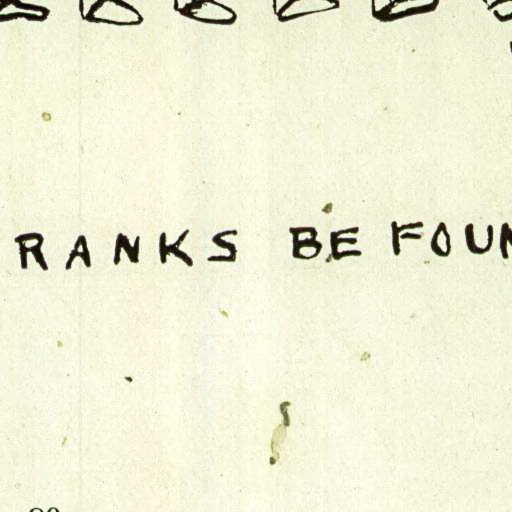 RANKS BE FOUN